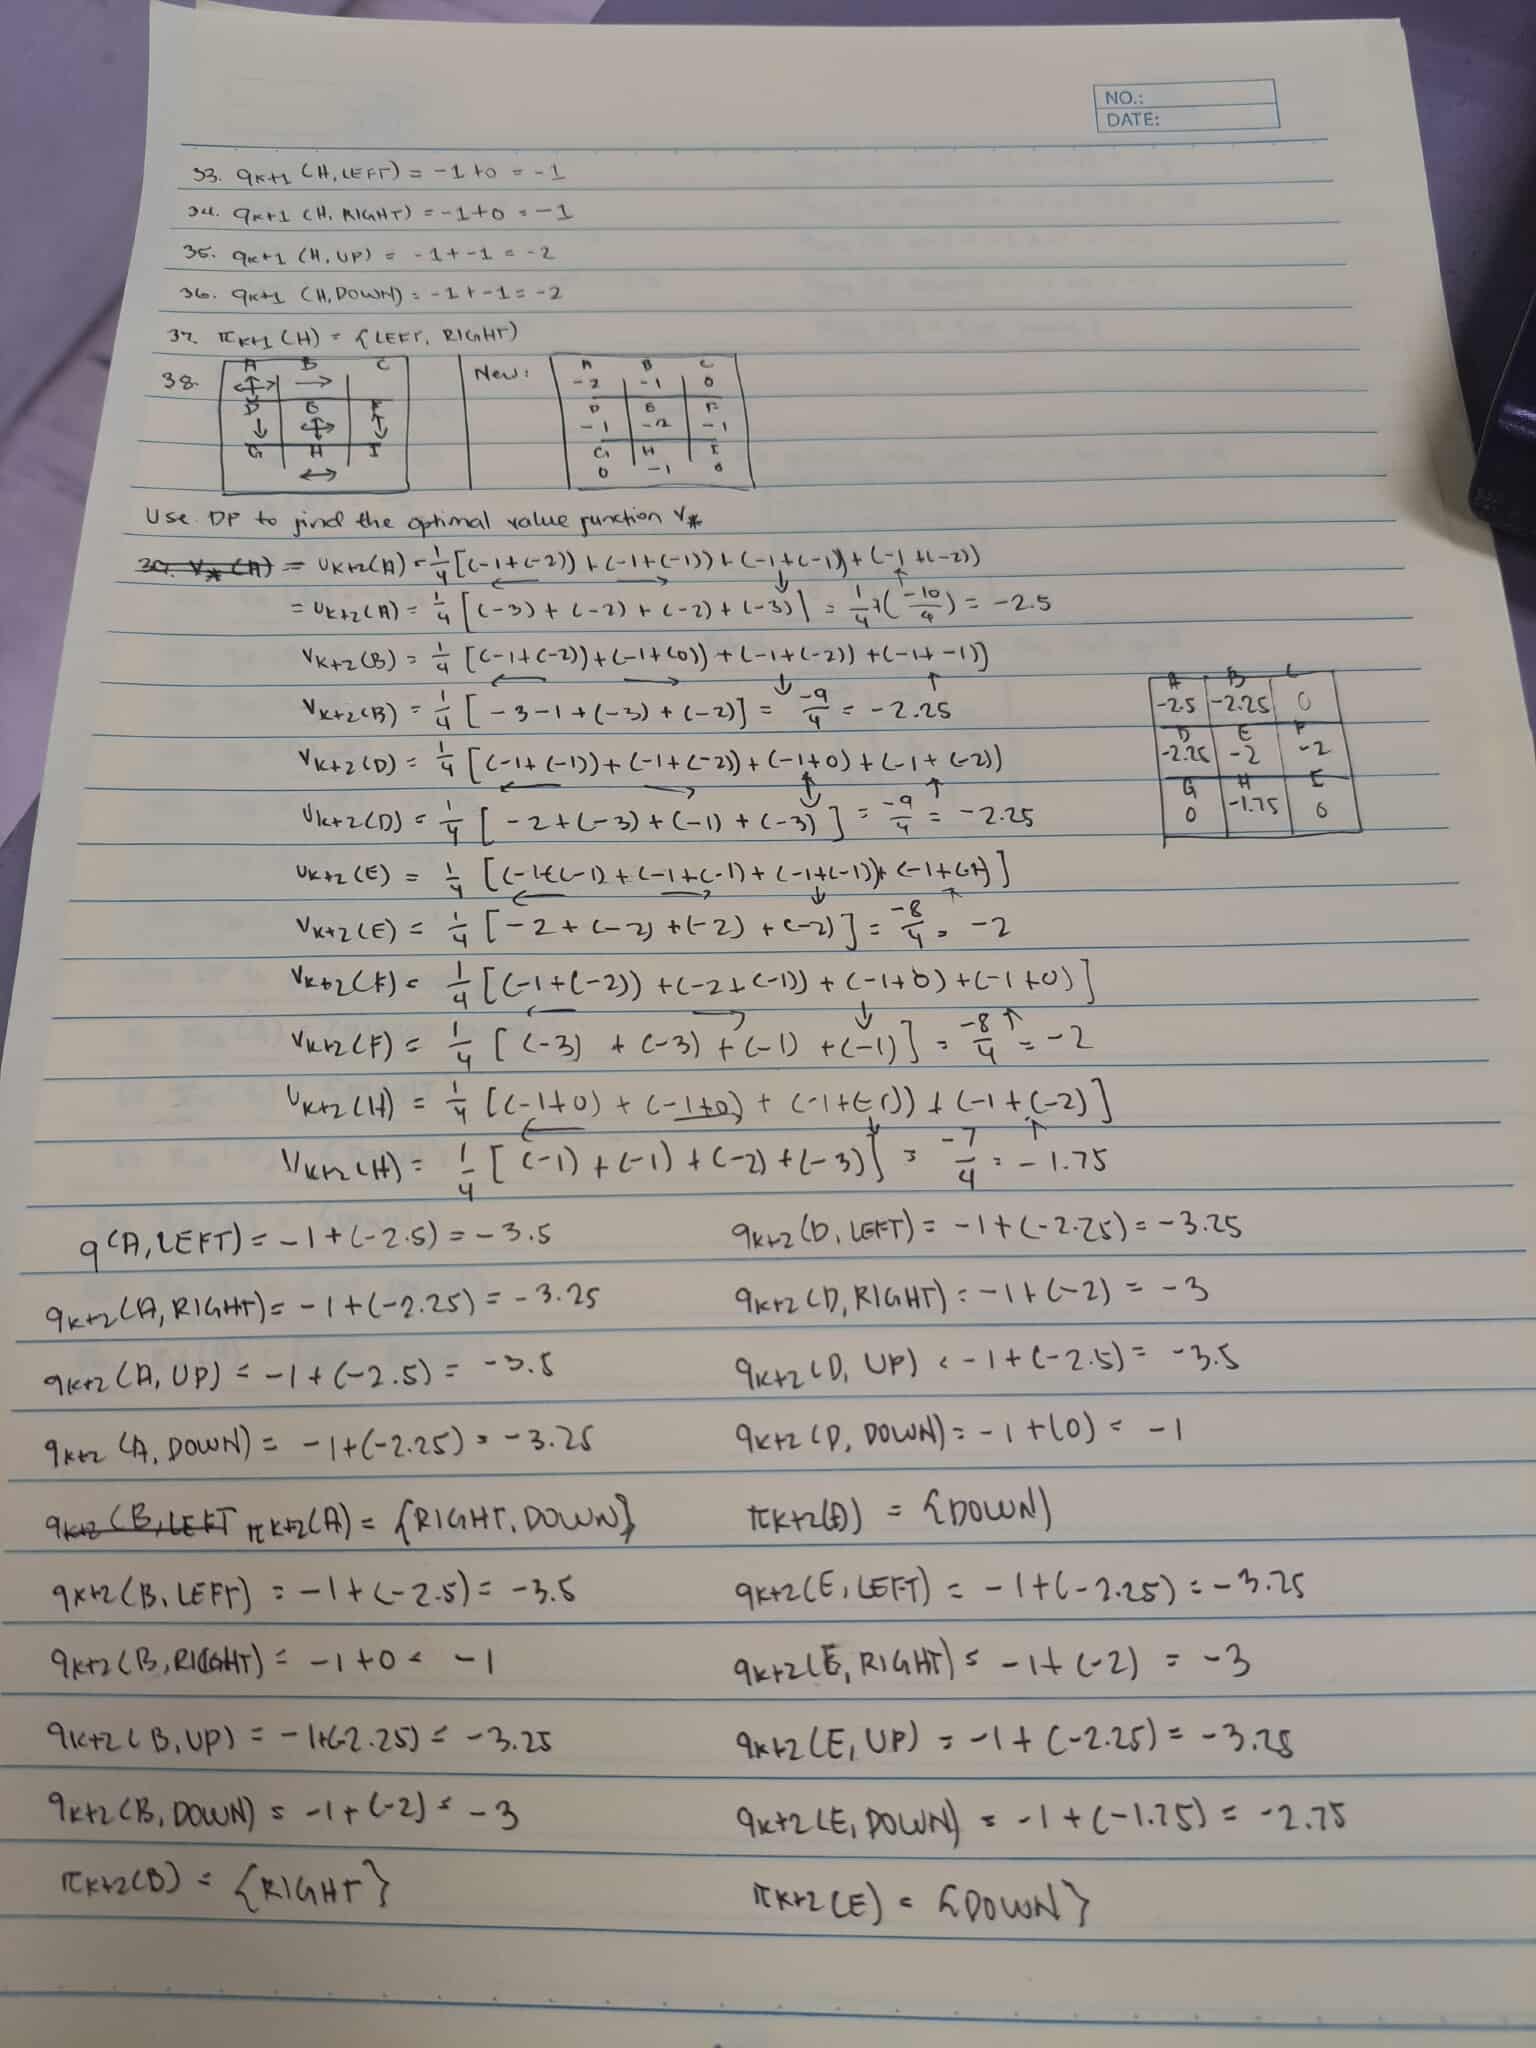 NO.:
DATE:
33. qk+1 (H, LEFT) = -1+0 = -1
34. qk+1 (H, RIGHT) = -1+0 = -1
35. qk+1 (H, UP) = -1+-1 = -2
36. qk+1 (H, DOWN) = -1+-1 = -2
37. πk+1 (H) = {LEFT, RIGHT)
38. A B C
D E F
G H I
New:
A B C
-2 -1 0
D E F
-1 -2 -1
G H I
0 -1 0
Use DP to find the optimal value function V*
39. V* (A) = Vk+2(A) = 1/4 [(-1+(-2)) + (-1+(-1)) + (-1+(-1)) + (-1+(-2))
← → ↓ ↑
= Vk+2(A) = 1/4 [(-3) + (-2) + (-2) + (-3)] = 1/4 + (-10/4) = -2.5
Vk+2(B) = 1/4 [(-1+(-2)) + (-1+(0)) + (-1+(-2)) + (-1+-1)]
← → ↓ ↑
Vk+2(B) = 1/4 [-3-1+(-3)+(-2)] = -9/4 = -2.25
Vk+2(D) = 1/4 [(-1+(-1)) + (-1+(-2)) + (-1+0) + (-1+(-2))
← → ↕ ↑
Vk+2(D) = 1/4 [-2+(-3)+(-1)+(-3)] = -9/4 = -2.25
Vk+2(E) = 1/4 [(-1+(-1) + (-1+(-1) + (-1+(-1)) + (-1+(-1)]
← → ↓ ↑
Vk+2(E) = 1/4 [-2+(-2)+(-2)+(-2)] = -8/4 = -2
Vk+2(F) = 1/4 [(-1+(-2)) + (-2+(-1)) + (-1+0) + (-1+0)]
← → ↓ ↑
Vk+2(F) = 1/4 [(-3) + (-3) + (-1) + (-1)] = -8/4 = -2
Vk+2(H) = 1/4 [(-1+0) + (-1+0) + (-1+(-1)) + (-1+(-2)]
← ↓ ↑
Vk+2(H) = 1/4 [(-1) + (-1) + (-2) + (-3)] = -7/4 = -1.75
A B C
-2.5 -2.25 0
D E F
-2.25 -2 -2
G H I
0 -1.75 0
q(A, LEFT) = -1+(-2.5) = -3.5
qk+2 (A, RIGHT) = -1+(-2.25) = -3.25
qk+2 (A, UP) = -1+(-2.5) = -3.5
qk+2 (A, DOWN) = -1+(-2.25) = -3.25
qk+2 (B, LEFT πk+2(A) = {RIGHT, DOWN}
qk+2 (B, LEFT) = -1+(-2.5) = -3.5
qk+2 (B, RIGHT) = -1+0 = -1
qk+2 (B, UP) = -1+(-2.25) = -3.25
qk+2 (B, DOWN) = -1+(-2) = -3
πk+2(B) = {RIGHT}
qk+2 (D, LEFT) = -1+(-2.25) = -3.25
qk+2 (D, RIGHT) = -1+(-2) = -3
qk+2 (D, UP) = -1+(-2.5) = -3.5
qk+2 (D, DOWN) = -1+(0) = -1
πk+2(D) = {DOWN)
qk+2(E, LEFT) = -1+(-2.25) = -3.25
qk+2(E, RIGHT) = -1+(-2) = -3
qk+2(E, UP) = -1+(-2.25) = -3.25
qk+2(E, DOWN) = -1+(-1.75) = -2.75
πk+2(E) = {DOWN}